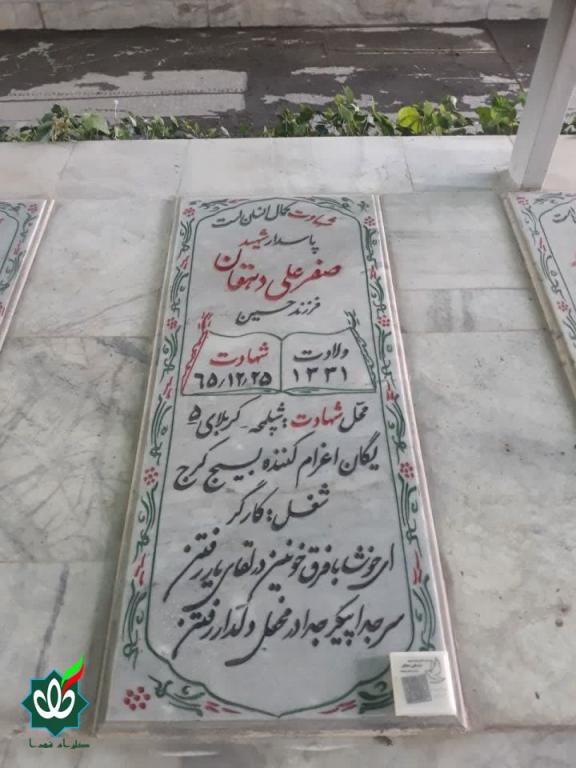 شهادت کمال انسان است
پاسدار شهید
صفر علی دهقان
فرزند حسین
ولادت
۱۳۳۱
شهادت
۶۵٫۱۲٫۲۵
محل شهادت: شلمچه - کربلای ۵
یگان اعزام کننده بسیج کرج
شغل: کارگر
ای خوشا با فرق خونین در لقای یار رفتن
سر جدا پیکر جدا در محفل دلدار رفتن
گلزار شهدا